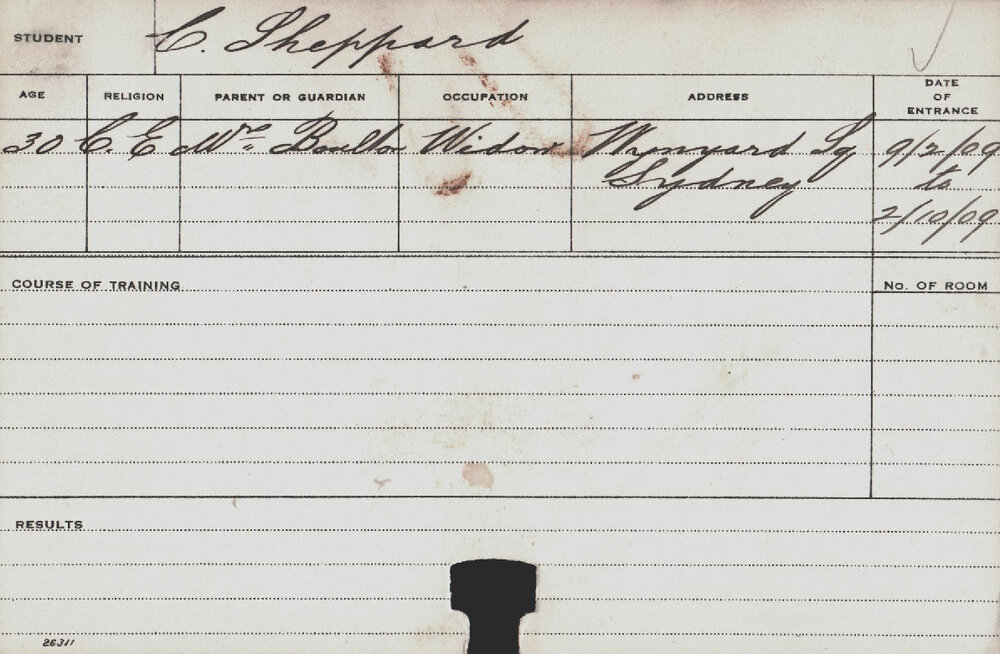 STUDENT C. Sheppard
AGE RELIGION PARENT OR GUARDIAN OCCUPATION ADDRESS DATE OF ENTRANCE
30 C. E Mrs Boulton Widow Wynyard Sq 9/2/09
Sydney to
2/10/09
COURSE OF TRAINING No. OF ROOM
RESULTS
26311